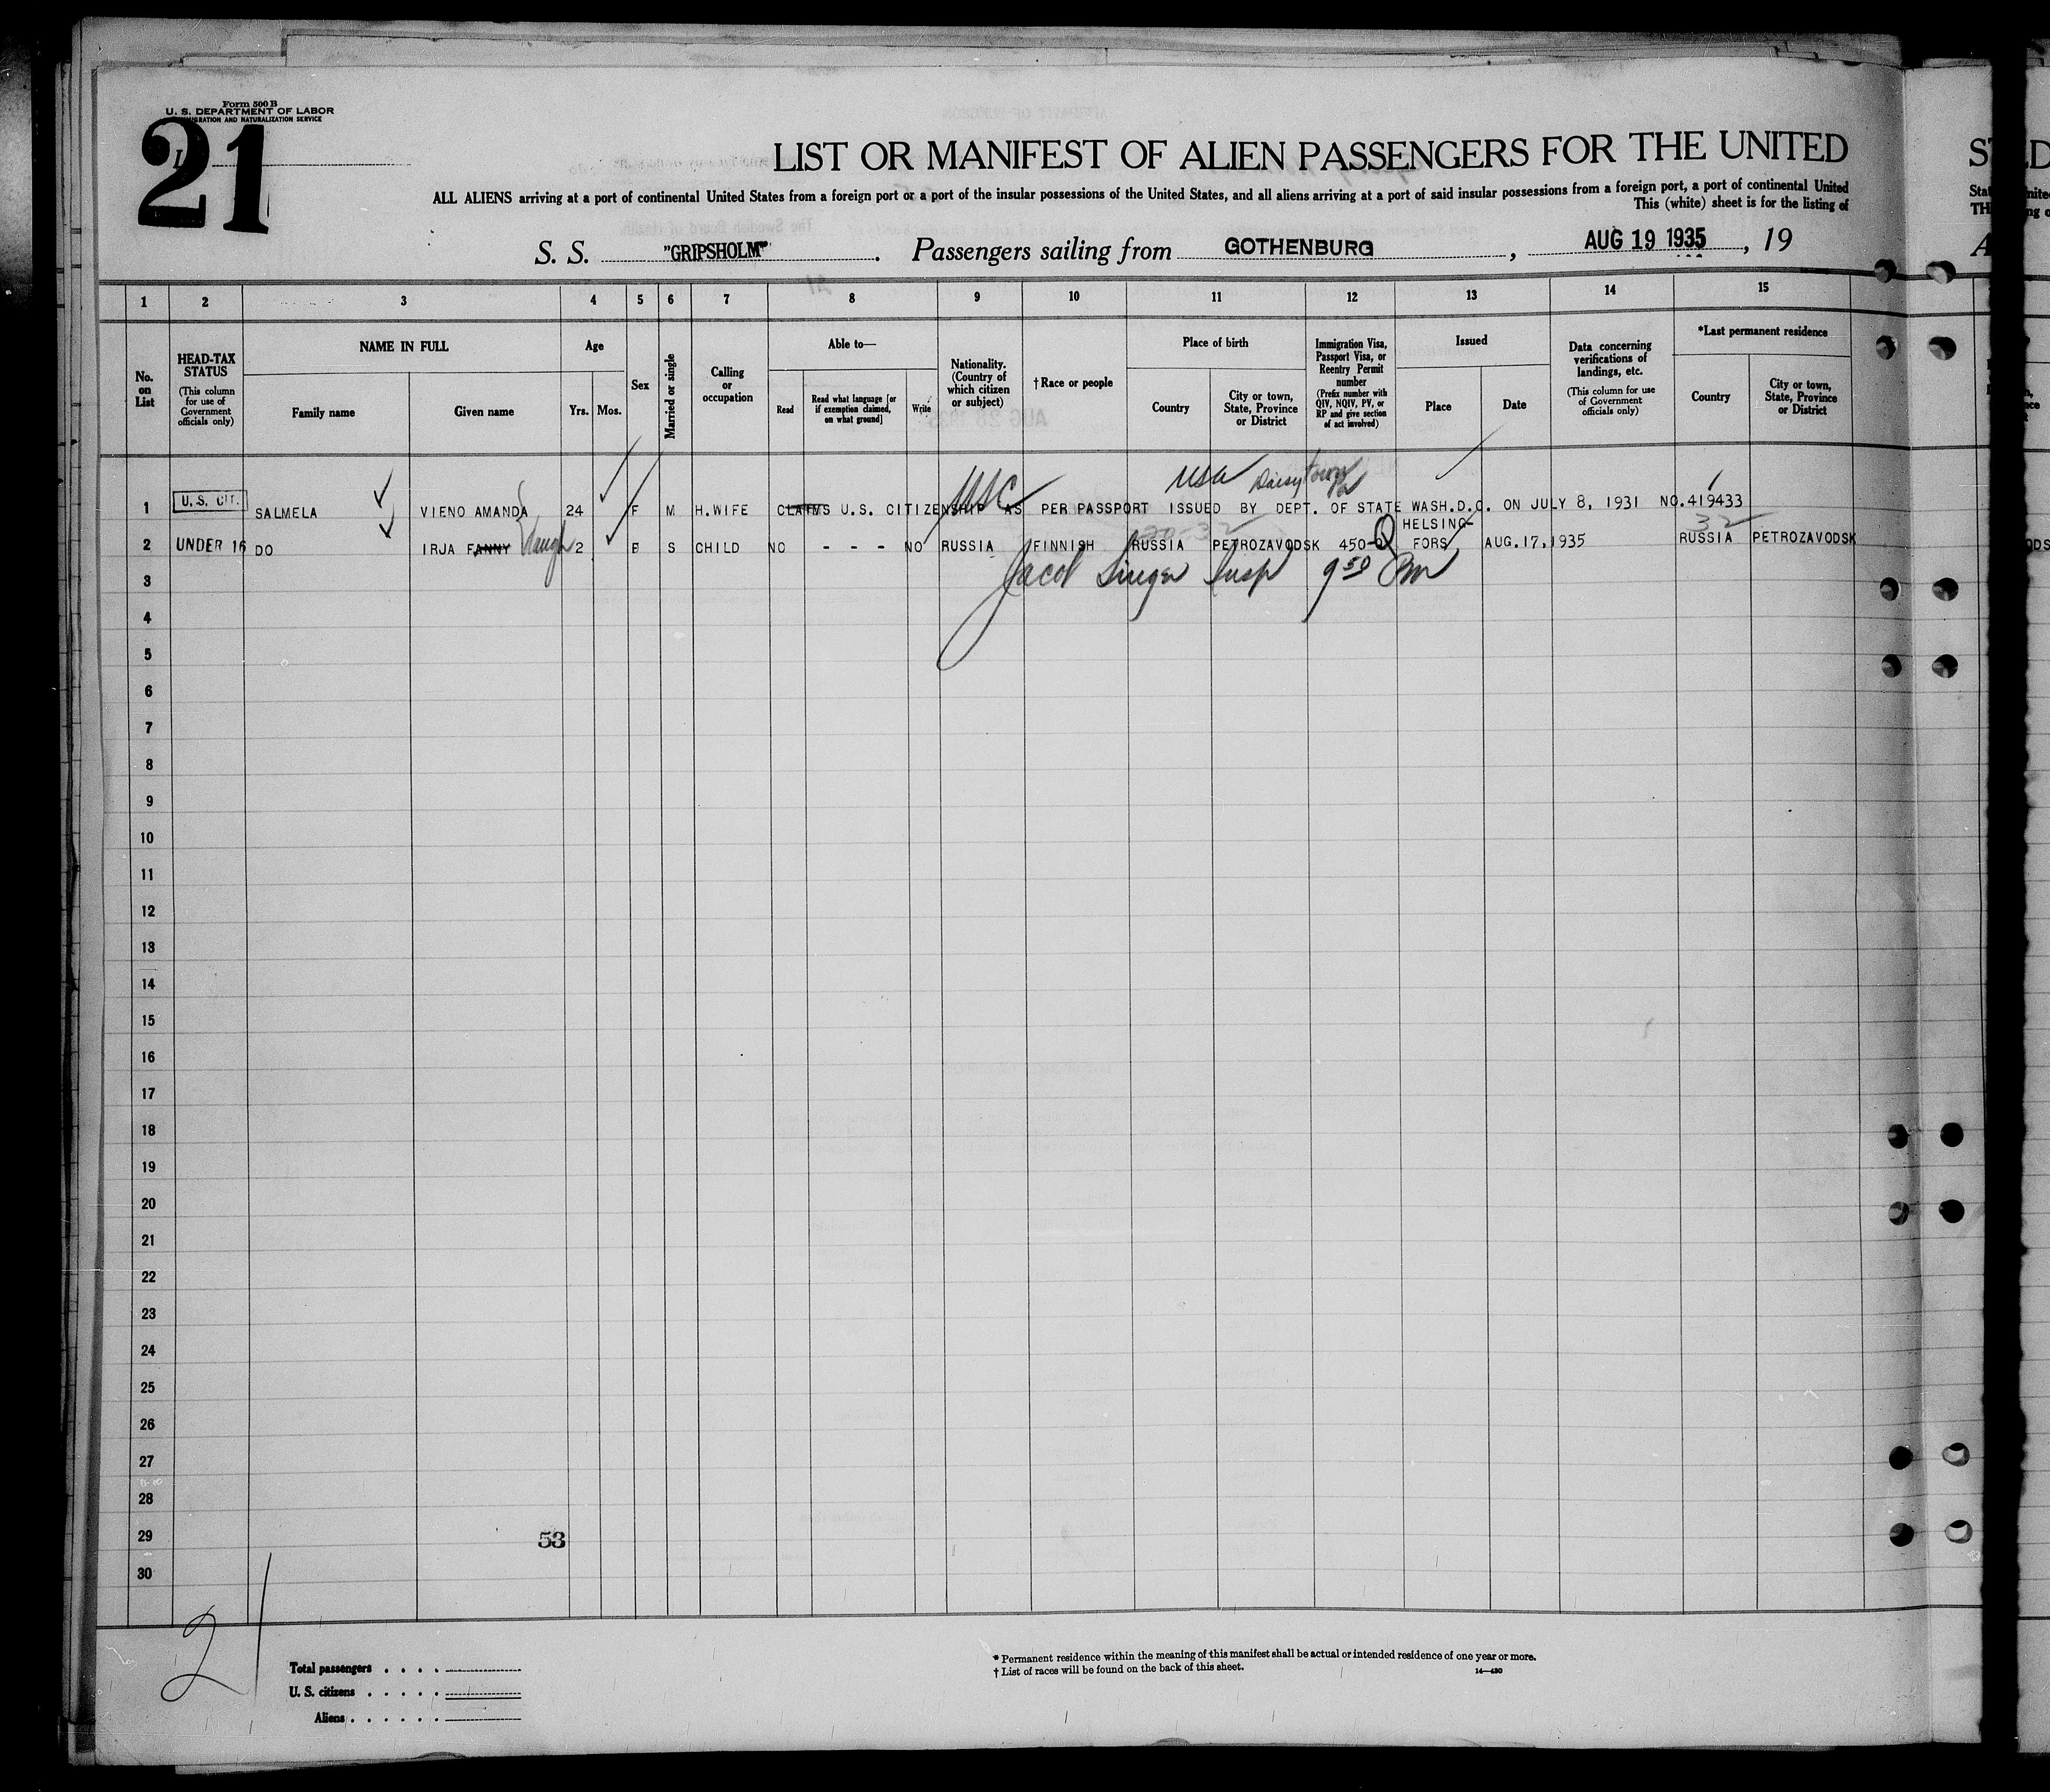 Form 500 B
U. S. DEPARTMENT OF LABOR
IMMIGRATION AND NATURALIZATION SERVICE
21
LIST OR MANIFEST OF ALIEN PASSENGERS FOR THE UNITED
ALL ALIENS arriving at a port of continental United States from a foreign port or a port of the insular possessions of the United States, and all aliens arriving at a port of said insular possessions from a foreign port, a port of continental United
This (white) sheet is for the listing of
S. S. "GRIPSHOLM". Passengers sailing from GOTHENBURG, AUG 19 1935, 19
1 2 3 4 5 6 7 8 9 10 11 12 13 14 15
No. on List
HEAD-TAX STATUS
(This column for use of Government officials only)
NAME IN FULL
Family name
Given name
Age
Yrs. Mos.
Sex
Married or single
Calling or occupation
Able to—
Read
Read what language [or if exemption claimed, on what ground]
Write
Nationality. (Country of which citizen or subject)
† Race or people
Place of birth
Country
City or town, State, Province or District
Immigration Visa, Passport Visa, or Reentry Permit number
(Prefix number with QIV, NQIV, PV, or RP and give section of act involved)
Issued
Place
Date
Data concerning verifications of landings, etc.
(This column for use of Government officials only)
*Last permanent residence
Country
City or town, State, Province or District
USC USA Daisytown Pa
1 U.S. CIT. SALMELA VIENO AMANDA 24 F M H.WIFE CLAIMS U.S. CITIZENSHIP AS PER PASSPORT ISSUED BY DEPT. OF STATE WASH.D.C. ON JULY 8, 1931 NO.419433
2 UNDER 16 DO IRJA FANNY 2 F S CHILD NO - - - NO RUSSIA FINNISH RUSSIA PETROZAVODSK 450-Q HELSING-FORS AUG.17,1935 RUSSIA PETROZAVODSK
32
Jacob Singer Insp 9 50 Am
3
4
5
6
7
8
9
10
11
12
13
14
15
16
17
18
19
20
21
22
23
24
25
26
27
28
29 53
30
21
Total passengers
U. S. citizens
Aliens
* Permanent residence within the meaning of this manifest shall be actual or intended residence of one year or more.
† List of races will be found on the back of this sheet.
14—430